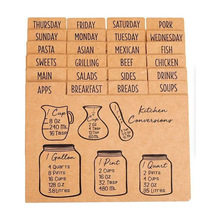 THURSDAY FRIDAY SATURDAY PORK
SUNDAY MONDAY TUESDAY WEDNESDAY
PASTA ASIAN MEXICAN FISH
SWEETS GRILLING BEEF CHICKEN
MAIN SALADS SIDES DRINKS
APPS BREAKFAST BREADS SOUPS
Kitchen
Conversions
1 Cup
8 OZ
240 ML
16 Tbsp
1 Gallon
4 Quarts
8 Pints
16 Cups
128 OZ
3.8 Litres
1 Pint
2 Cups
16 OZ
32 Tbsp
480 ML
1 Quart
2 Pints
4 Cups
32 OZ